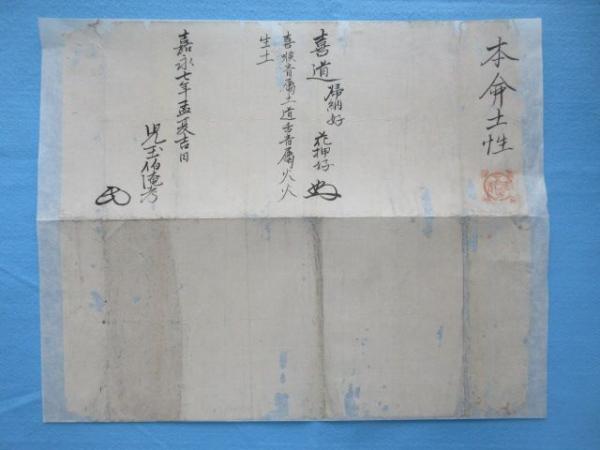 本命土性
喜道 帰納好 花押好
喜喉音属土道舌音属火火
生土
嘉永七年孟夏吉日
児玉伯庵考